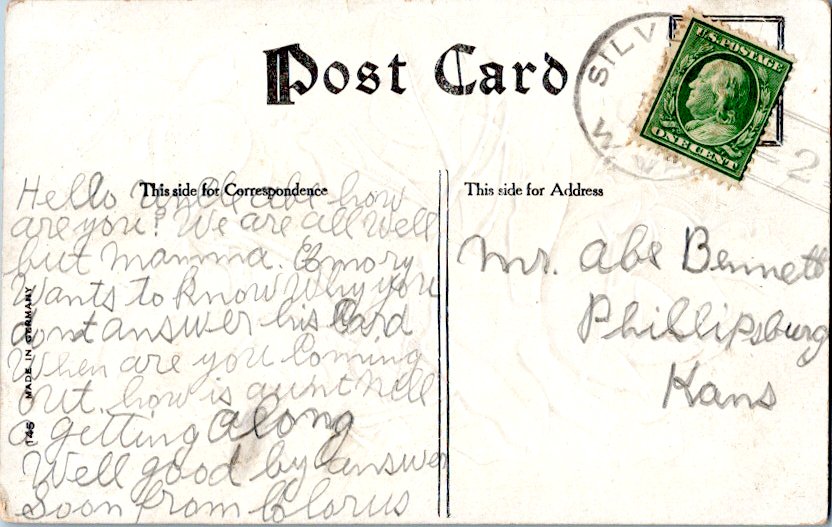 Post Card
SILVE
U.S. POSTAGE
ONE CENT
2
This side for Correspondence
This side for Address
Hello Uncle abe how
are you? We are all well
but mamma. Emory
Wants to know why you
dont answer his Card
When are you Coming
out. how is aunt Nell
a getting along
Well good by answer
Soon from Clorus
Mr. Abe Bennett
Phillipsburg
Kans
145 MADE IN GERMANY